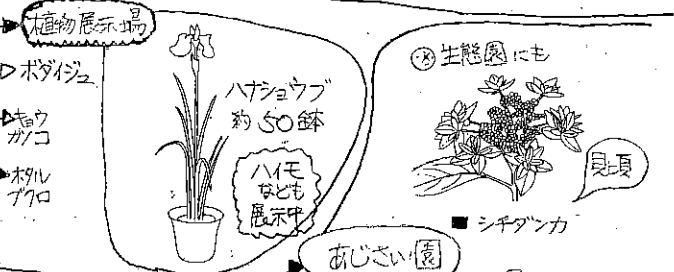 植物展示場
ボダイジュ
キョウ
ガノコ
ホタル
ブクロ
ハナショウブ
約50鉢
ハイモ
なども
展示中
※生態園にも
見頃
シチダンカ
あじさい園